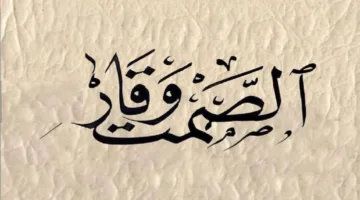 الصَّمت وَقار